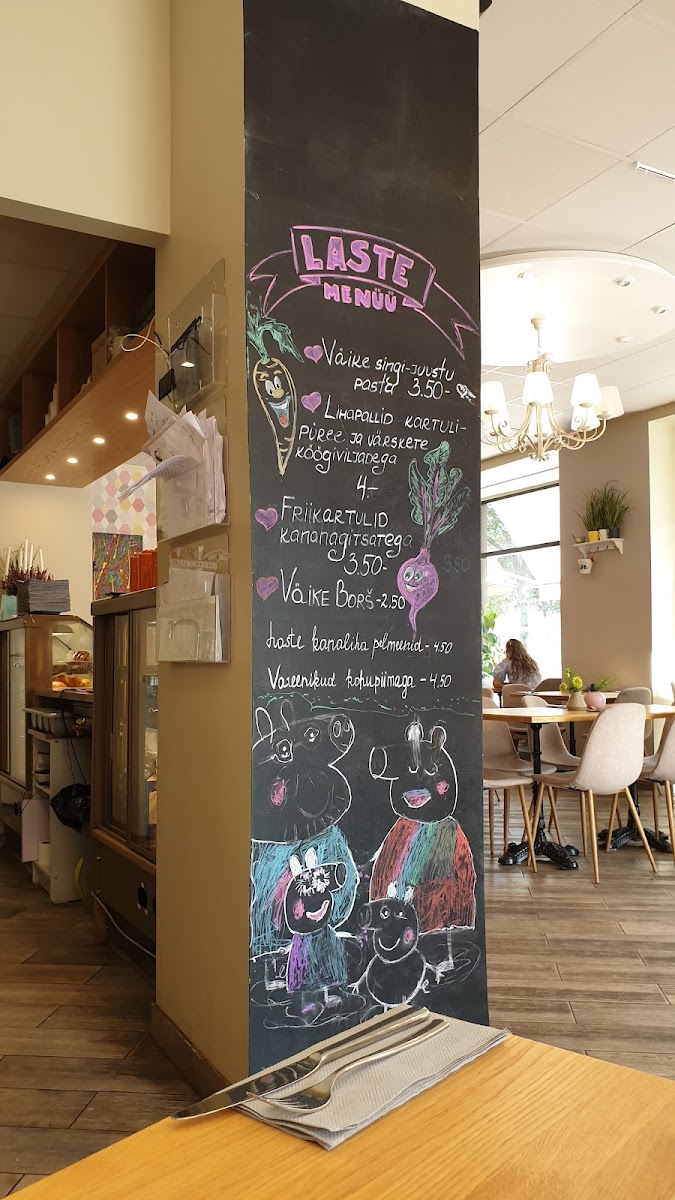 LASTE
MENÜÜ
Väike singi-juustu
pasta 3.50-
Lihapallid kartuli-
püree ja värskete
köögiviljadega
4.-
Friikartulid
kananagitsatega
3.50-
Väike Borš - 2.50
laste kanaliha pelmeenid - 4.50
Vareenikud kohupiimaga - 4.50